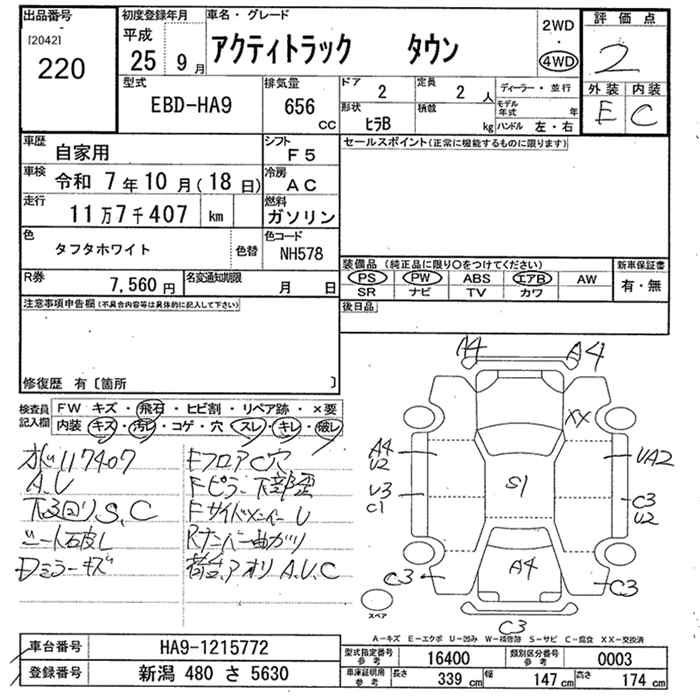 出品番号
[2042]
220
初度登録年月
平成
25 9月
車名・グレード
アクティトラック タウン
2WD
・
4WD
評価点
2
外装 内装
E C
型式
EBD-HA9
排気量
656
cc
ドア 2
定員 2 人
形状 ヒラB
積載 kg
ディーラー・並行
モデル年式 年
ハンドル 左・右
車歴
自家用
シフト
F5
車検
令和 7年10月(18日)
冷房
AC
走行
11万7千407 km
燃料
ガソリン
色
タフタホワイト
色替
色コード
NH578
R券
7,560円
名変通知期限
月 日
セールスポイント(正常に機能するものに限ります)
装備品 (純正品に限り○をつけてください)
PS PW ABS エアB AW
SR ナビ TV カワ
新車保証書
有・無
後日品
注意事項申告欄(不具合内容等は具体的に記入して下さい)
修復歴 有〔箇所 〕
検査員記入欄
FW キズ・飛石・ヒビ割・リペア跡・×要
内装 キズ・汚レ・コゲ・穴 スレ・キレ・破レ
117407
A.U
下回りS、C
シート石皮レ
Dミラーキズ
FフロアC穴
Fピラー下部歪
FサイドメンバーU
Rナンバー曲ガリ
荷台、アオリ A.U.C
A4
A4
XX
A4
U2
UA2
S1
U3
C1
C3
U2
A4
C3
C3
C3
スペア
A-キズ E-エクボ U-凹み W-補修跡 S-サビ C-腐食 XX-交換済
車台番号
HA9-1215772
登録番号
新潟 480 さ 5630
型式指定番号
参考
16400
類別区分番号
参考
0003
車庫証明用
参考
長さ 339 cm
幅 147 cm
高さ 174 cm